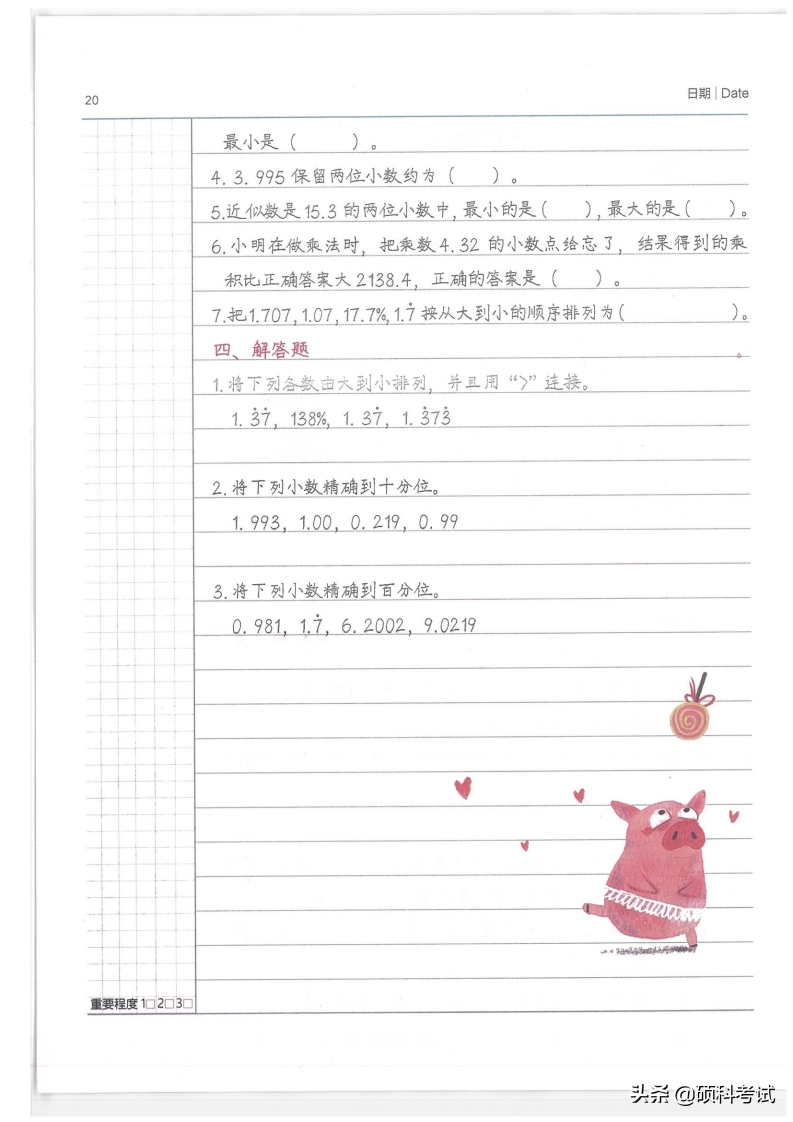 20
日期 | Date
最小是（　　）。
4. 3.995 保留两位小数约为（　　）。
5.近似数是15.3 的两位小数中,最小的是(　　),最大的是(　　)。
6.小明在做乘法时，把乘数4.32 的小数点给忘了，结果得到的乘
积比正确答案大2138.4，正确的答案是（　　）。
7.把1.707,1.07,17.7%,1.7̇ 按从大到小的顺序排列为(　　　　)。
四、解答题
1.将下列各数由大到小排列，并且用“>”连接。
1.3̇7̇，138%，1.37̇，1.3̇73̇
2.将下列小数精确到十分位。
1.993，1.00，0.219，0.99
3.将下列小数精确到百分位。
0.981，1.7̇，6.2002，9.0219
重要程度 1□2□3□
头条 @硕科考试